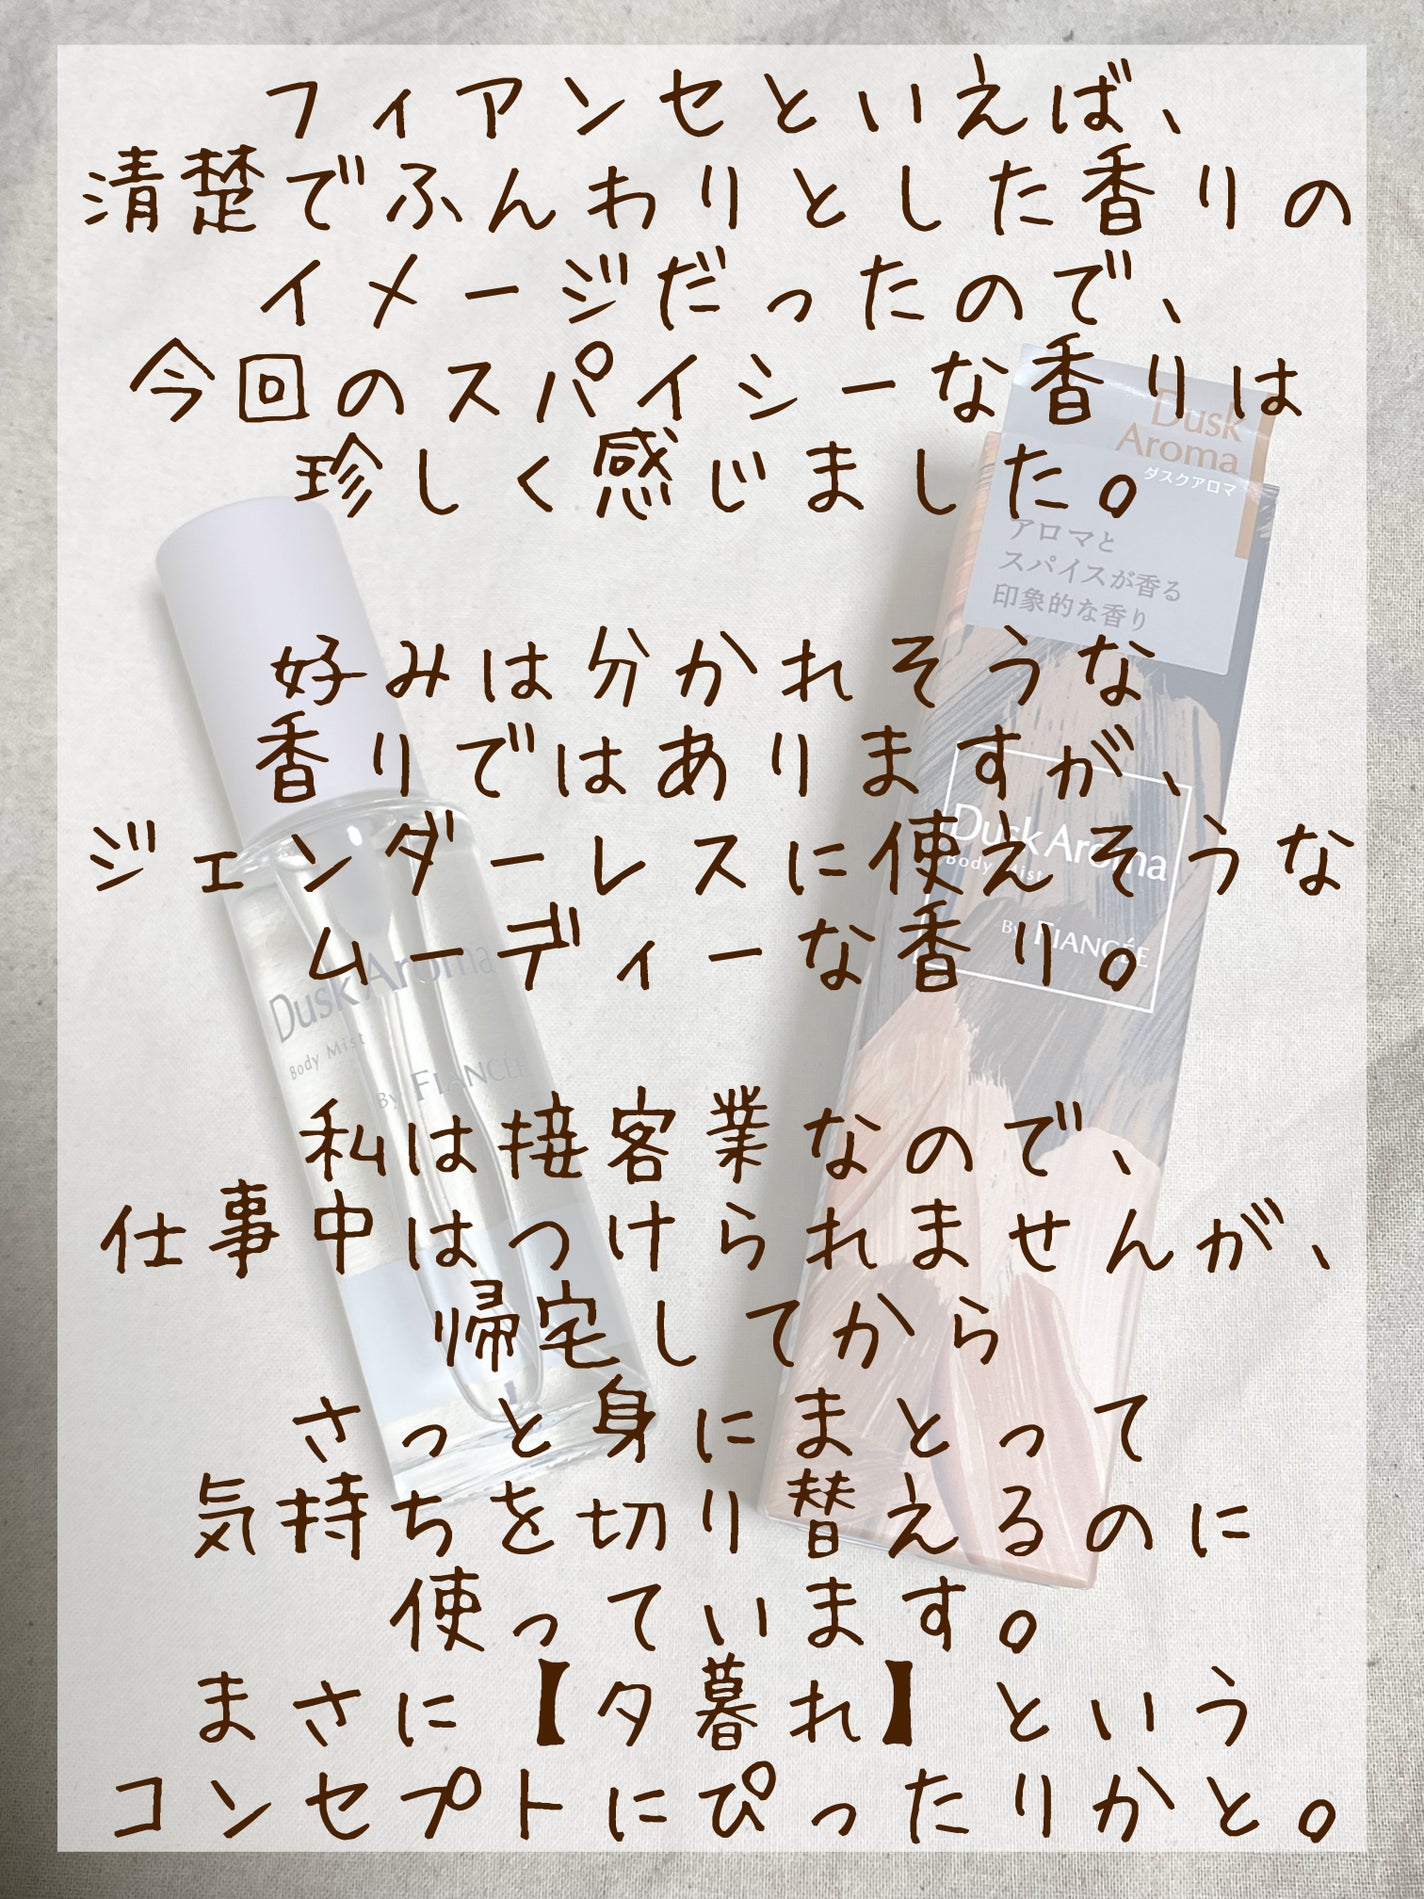 フィアンセといえば、
清楚でふんわりとした香りの
イメージだったので、
今回のスパイシーな香りは
珍しく感じました。
好みは分かれそうな
香りではありますが、
ジェンダーレスに使えそうな
ムーディーな香り。
私は接客業なので、
仕事中はつけられませんが、
帰宅してから
さっと身にまとって
気持ちを切り替えるのに
使っています。
まさに【夕暮れ】という
コンセプトにぴったりかと。
Dusk
Aroma
ダスクアロマ
アロマと
スパイスが香る
印象的な香り
Dusk Aroma
Body Mist
By FIANCÉE
Dusk Aroma
Body Mist
By FIANCÉE